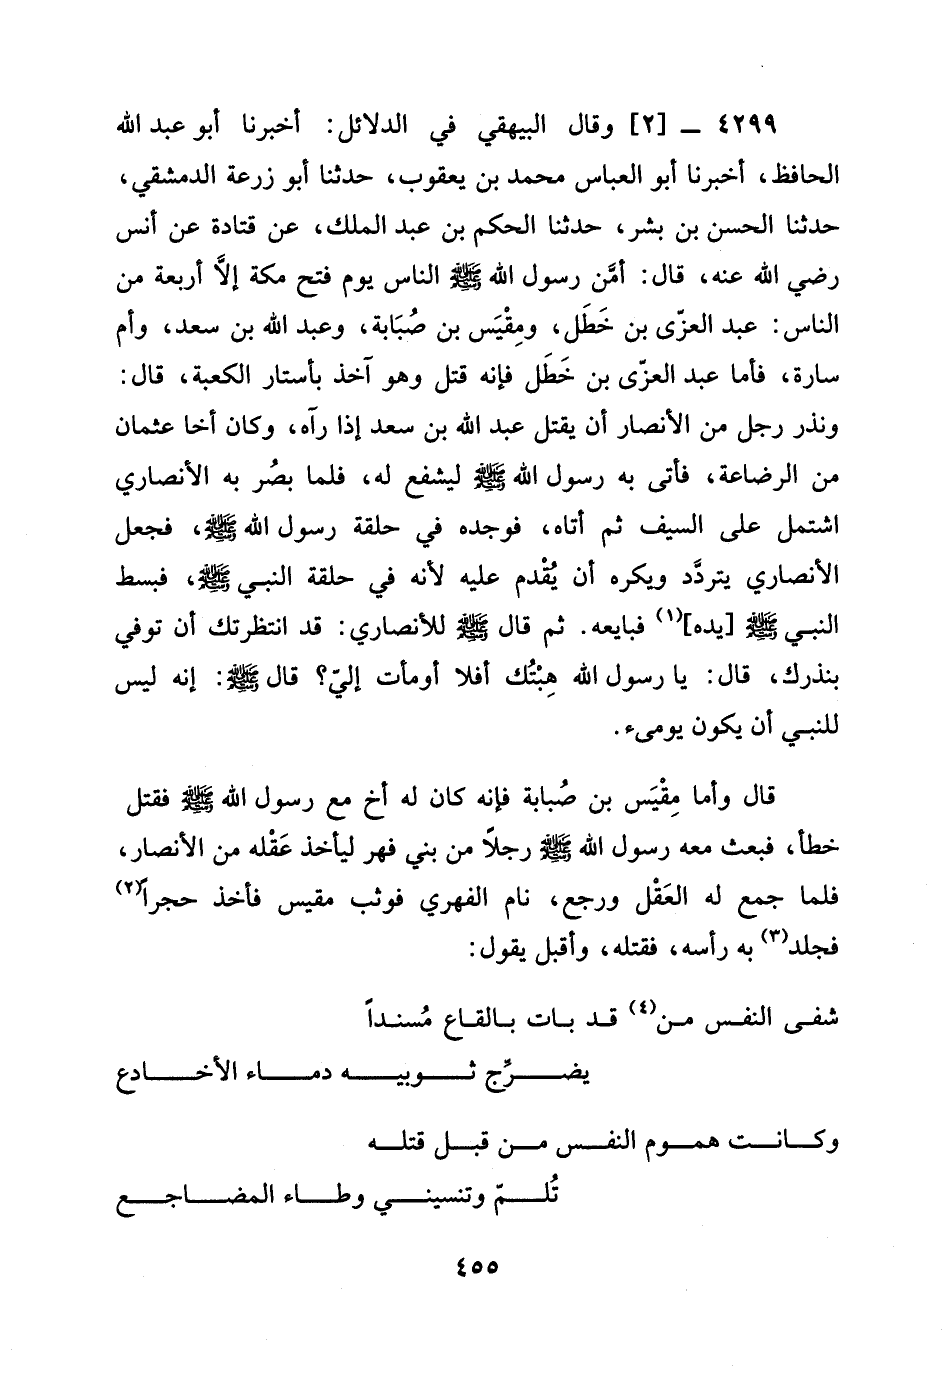 ٤٢٩٩ ـ [٢] وقال البيهقي في الدلائل: أخبرنا أبو عبد الله
الحافظ، أخبرنا أبو العباس محمد بن يعقوب، حدثنا أبو زرعة الدمشقي،
حدثنا الحسن بن بشر، حدثنا الحكم بن عبد الملك، عن قتادة عن أنس
رضي الله عنه، قال: أمَّن رسول الله ﷺ الناس يوم فتح مكة إلاَّ أربعة من
الناس: عبد العزّى بن خَطَل، ومِقْيَس بن صُبَابة، وعبد الله بن سعد، وأم
سارة، فأما عبد العزّى بن خَطَل فإنه قتل وهو آخذ بأستار الكعبة، قال:
ونذر رجل من الأنصار أن يقتل عبد الله بن سعد إذا رآه، وكان أخا عثمان
من الرضاعة، فأتى به رسول الله ﷺ ليشفع له، فلما بصُر به الأنصاري
اشتمل على السيف ثم أتاه، فوجده في حلقة رسول الله ﷺ، فجعل
الأنصاري يتردَّد ويكره أن يُقْدم عليه لأنه في حلقة النبي ﷺ، فبسط
النبي ﷺ [يده](١) فبايعه. ثم قال ﷺ للأنصاري: قد انتظرتك أن توفي
بنذرك، قال: يا رسول الله هِبْتُك أفلا أومأت إليّ؟ قال ﷺ: إنه ليس
للنبي أن يكون يومىء.
قال وأما مِقْيَس بن صُبابة فإنه كان له أخ مع رسول الله ﷺ فقتل
خطأ، فبعث معه رسول الله ﷺ رجلاً من بني فهر ليأخذ عَقْله من الأنصار،
فلما جمع له العَقْل ورجع، نام الفهري فوثب مقيس فأخذ حجراً(٢)
فجلد(٣) به رأسه، فقتله، وأقبل يقول:
شفى النفس من(٤) قد بات بالقاع مُسنداً
يضرِّج ثوبيه دماء الأخادع
وكانت هموم النفس من قبل قتله
تُلمّ وتنسيني وطاء المضاجع
٤٥٥